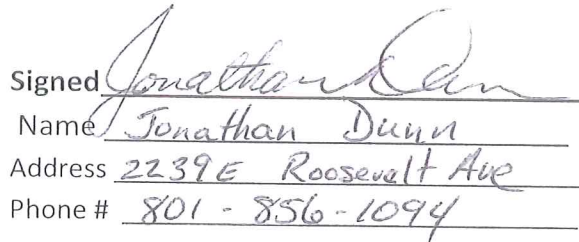 Signed Jonathan Dunn
Name Jonathan Dunn
Address 2239E Roosevelt Ave
Phone # 801-856-1094